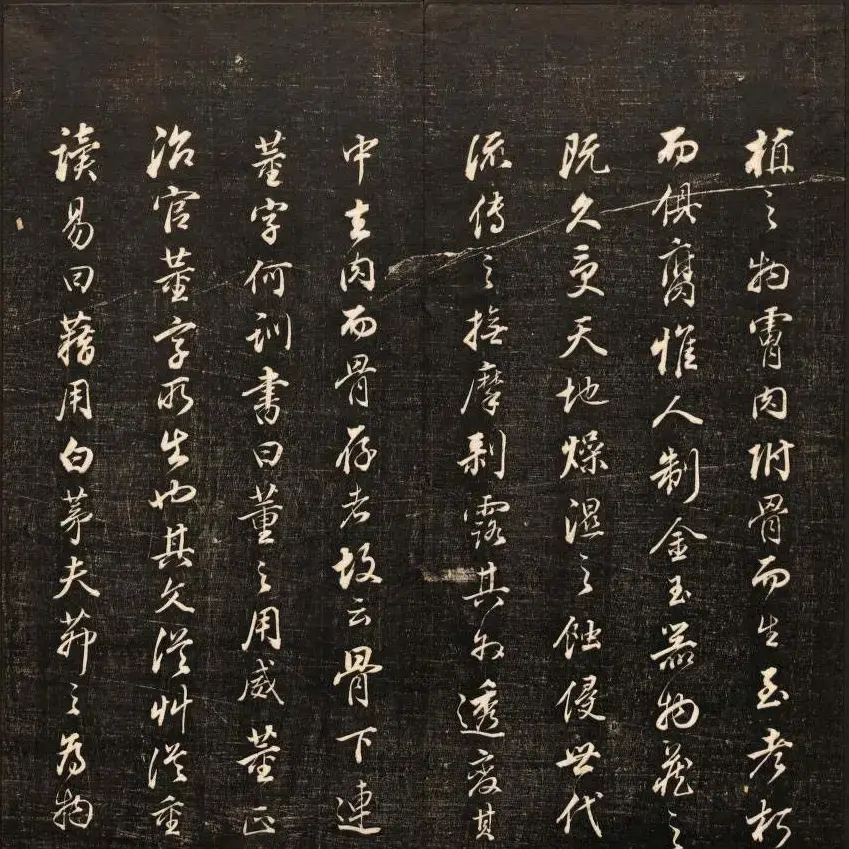 植之物肉附骨而生至老朽
而俱腐惟人制金玉器物藏之
既久更天地燥濕之蝕侵世代
流傳之撫摩剥露其外透變其
中去肉而骨存者故云骨下連
董字何訓書曰董之用威董正
治官董字所生也其文從艸從重
讀易曰藉用白茅夫茅之為物